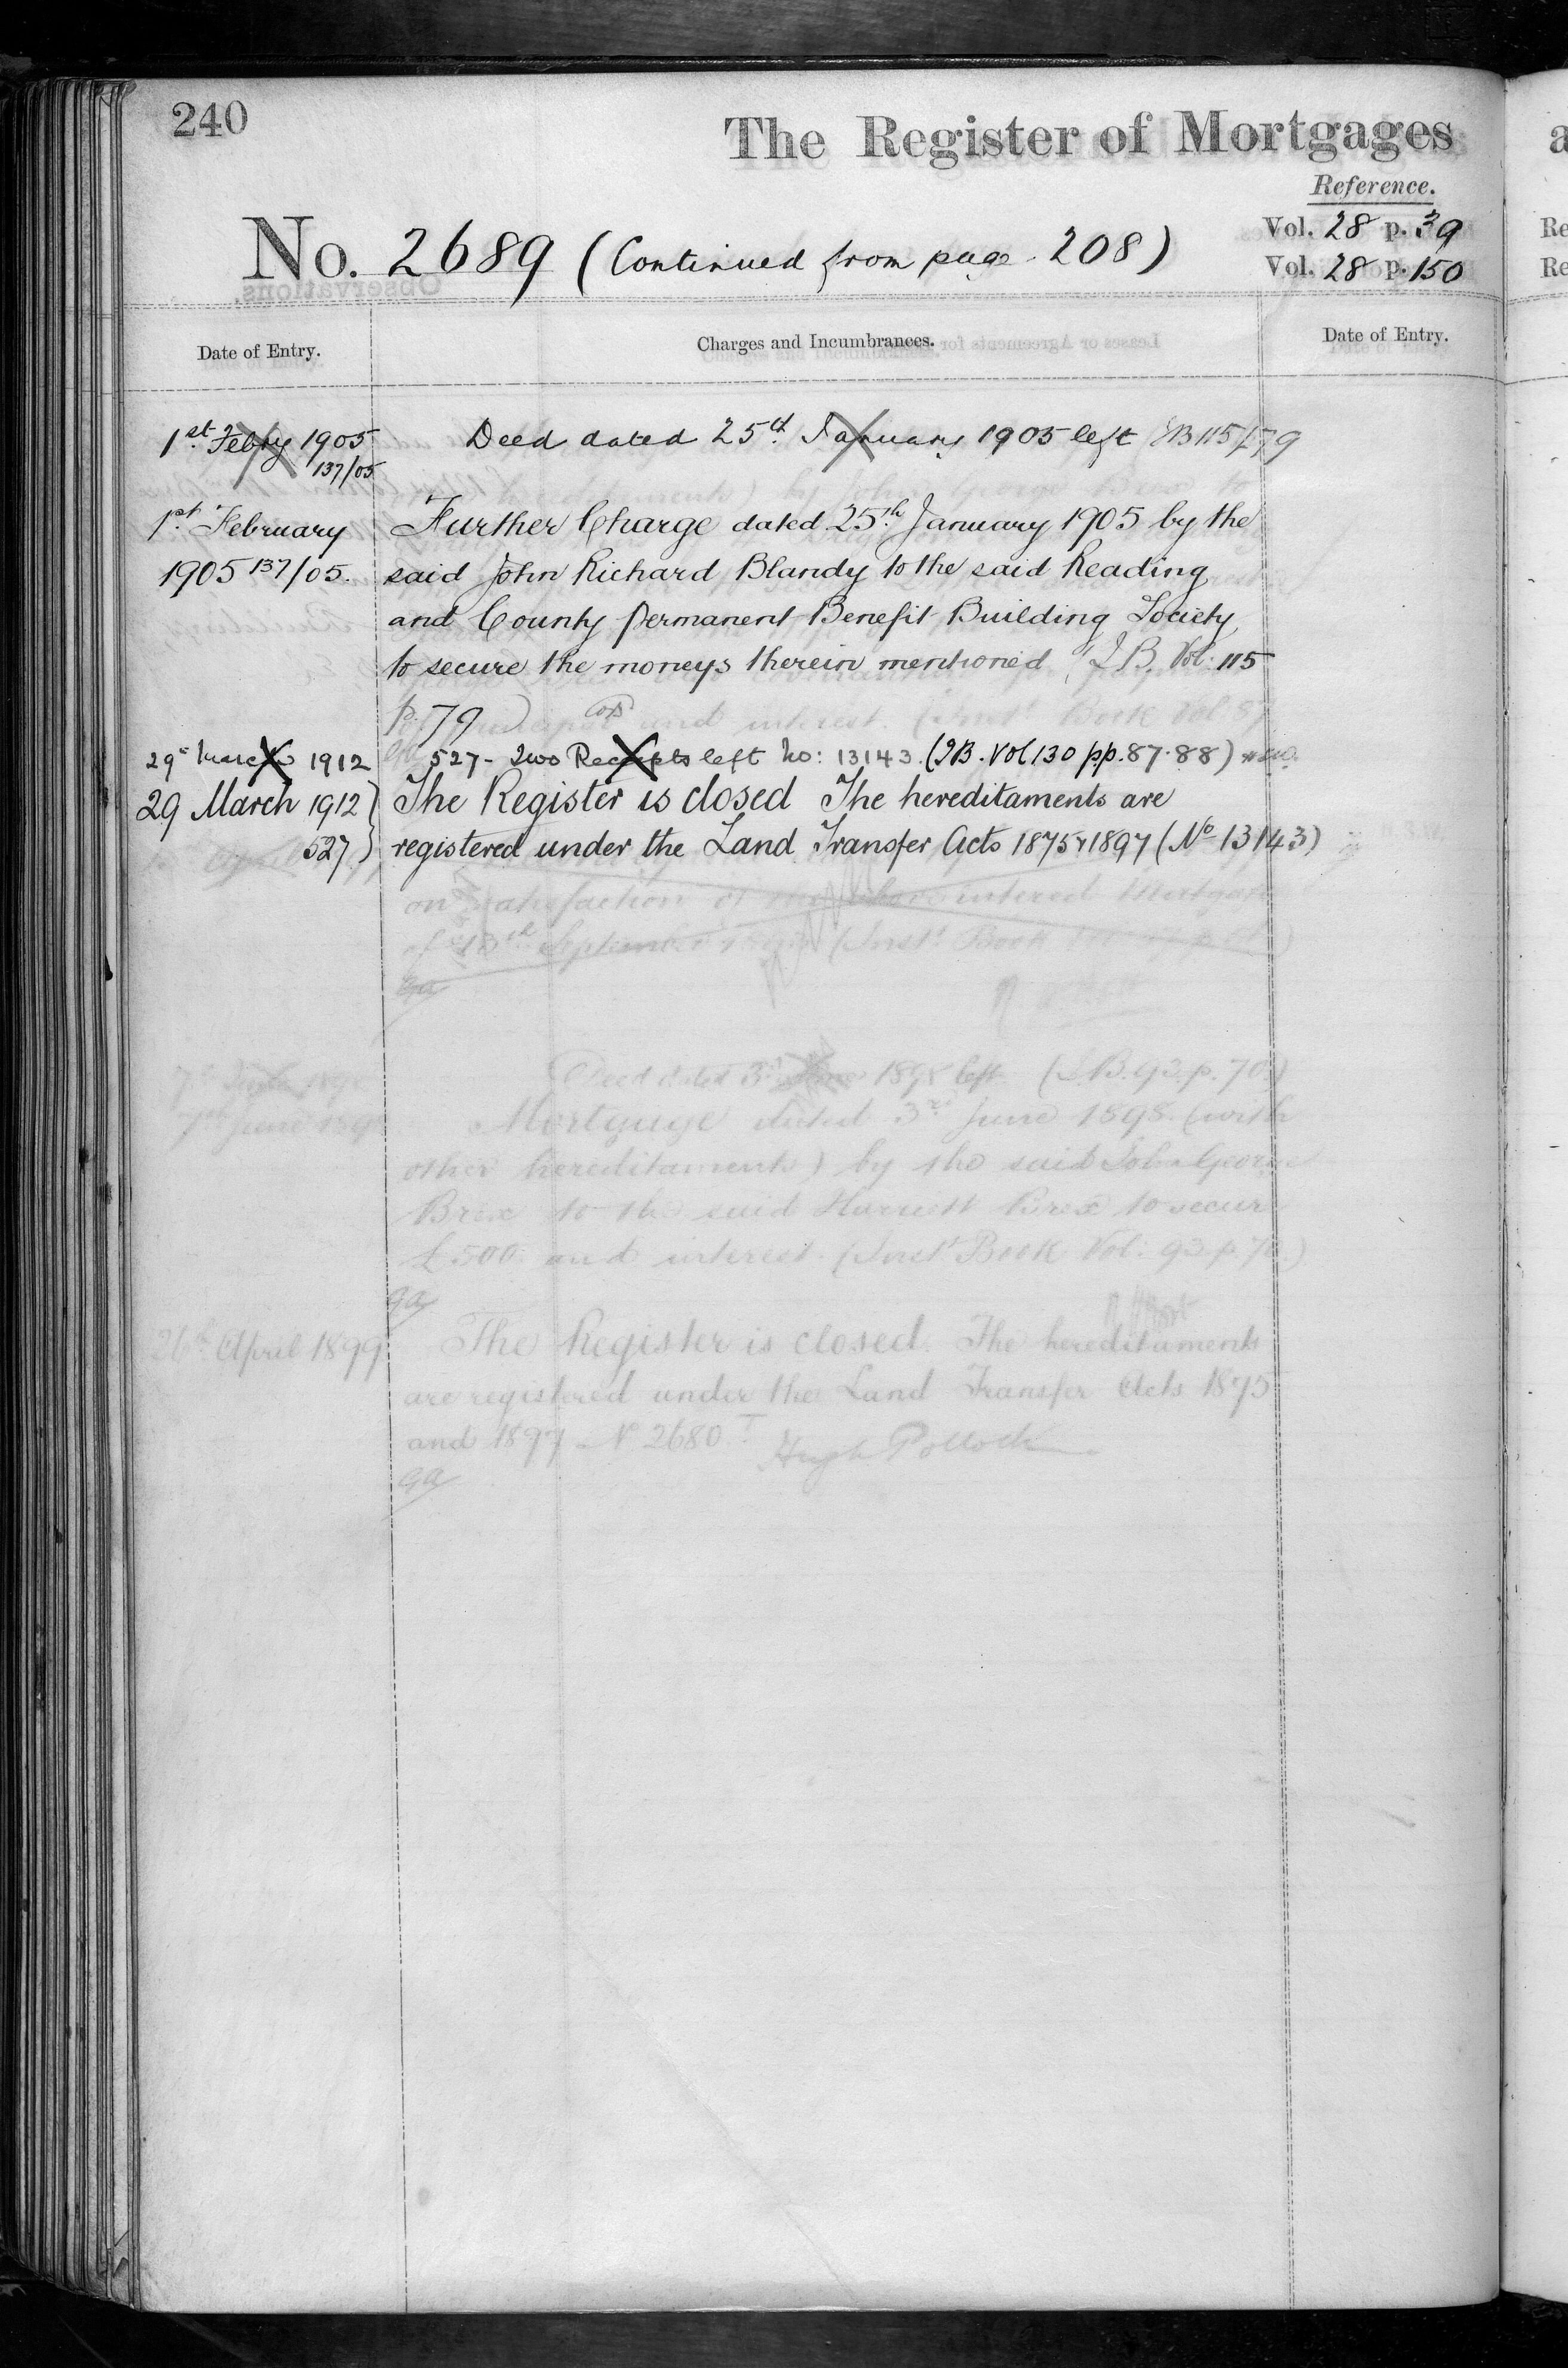 240
The Register of Mortgages
Reference.
No. 2689 (Continued from page 208)
Vol. 28 p. 39
Vol. 28 p. 150
Date of Entry.
Charges and Incumbrances.
Date of Entry.
1st Febry 1905
137/05
Deed dated 25th January 1905 left
1st February
1905 137/05.
Further Charge dated 25th January 1905 by the
said John Richard Blandy to the said Reading
and County Permanent Benefit Building Society
to secure the moneys therein mentioned I.B. Vol: 115
p. 79)
29 March 1912
527 - Two Receipts left No: 13143. (IB. Vol 130 pp. 87.88)
29 March 1912
527.
The Register is closed The hereditaments are
registered under the Land Transfer Acts 1875 & 1897 (No 13143)
Deed dated 3rd June 1898 left (I.B. 93. p. 70)
7th June 1898
Mortgage dated 3rd June 1898. (with
other hereditaments) by the said John George
Brex to the said Harriett Brex to secure
£500. and interest. (Inst. Book Vol: 93. p. 70)
26th April 1899
The Register is closed. The hereditaments
are registered under the Land Transfer Acts 1875
and 1897 - No 2680
Hugh Pollock